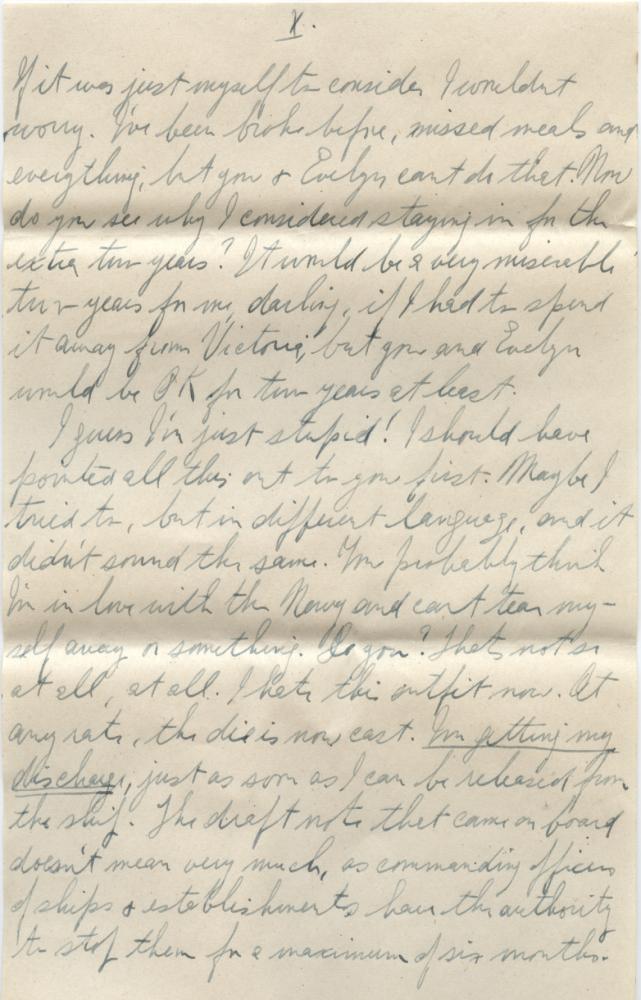 X.
If it was just myself to consider I wouldn't
worry. I've been broke before, missed meals and
everything, but you & Evelyn can't do that. Now
do you see why I considered staying in for the
extra two years? It would be a very miserable
two years for me, darling, if I had to spend
it away from Victoria, but you and Evelyn
would be OK for two years at least.
I guess I'm just stupid! I should have
pointed all this out to you first. Maybe I
tried to, but in different language, and it
didn't sound the same. You probably think
I'm in love with the Navy and can't tear my-
self away or something. Do you? That's not so
at all, at all. I hate this outfit now. At
any rate, the die is now cast. I'm getting my
discharge, just as soon as I can be released from
the ship. The draft note that came on board
doesn't mean very much, as commanding officers
of ships & establishments have the authority
to stop them for a maximum of six months.